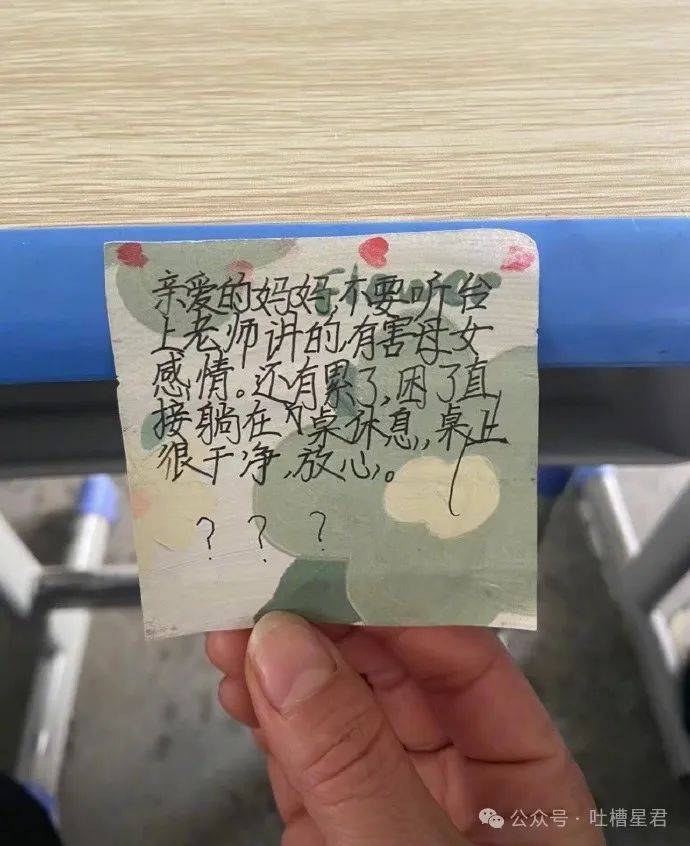 亲爱的妈妈,不要听台
上老师讲的,有害母女
感情。还有累了,困了直
接躺在桌休息,桌上
很干净,放心。
? ? ?
公众号 · 吐槽星君